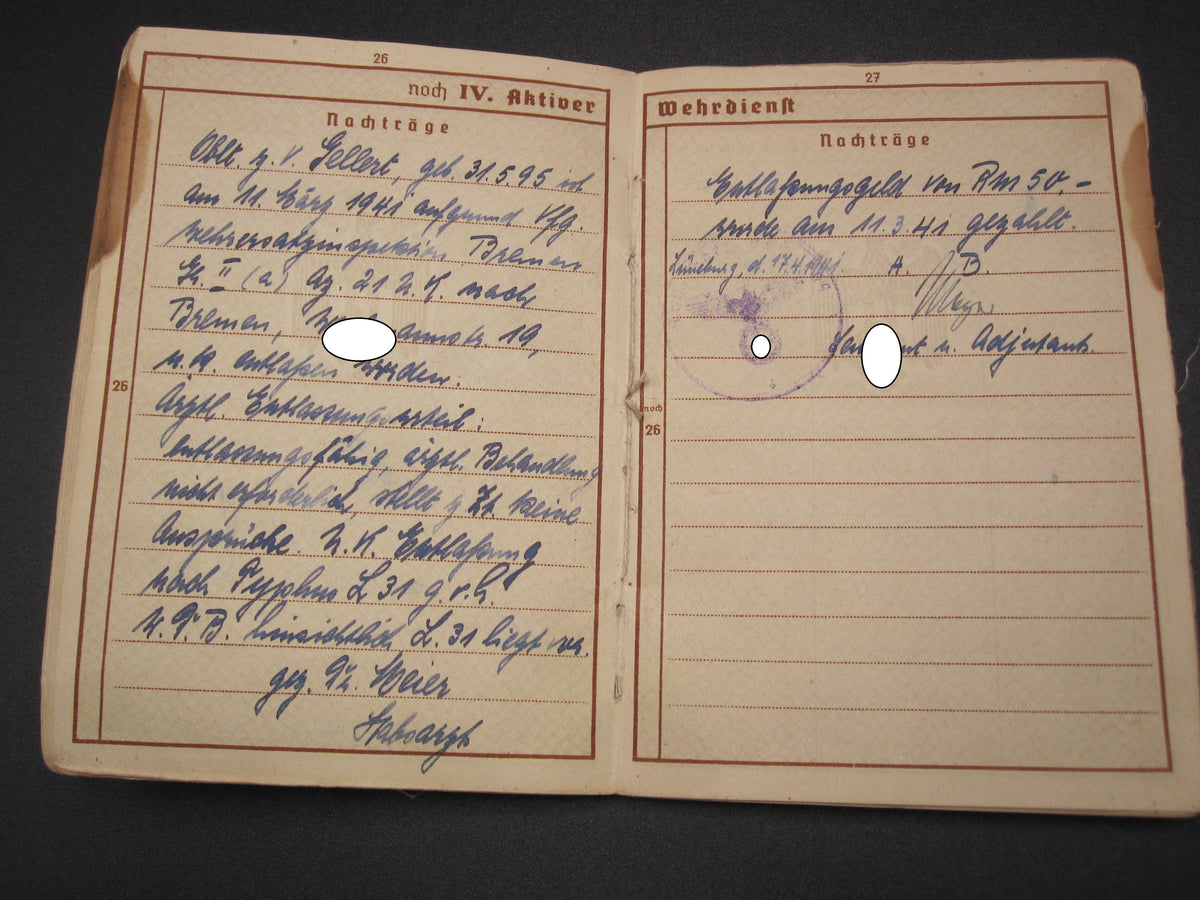 26
noch IV. Aktiver
Nachträge
Oblt. z. V. Gellert, geb. 31.5.95 ist
am 11. März 1941 aufgrund Vfg.
Wehrersatzinspektion Bremen
Gr. II (a) Az. 21 U.K. nach
Bremen, 19,
u.k. entlaßen worden.
26
Ärztl. Entlassungsurteil:
entlassungsfähig, ärztl. Behandlung
nicht erforderlich, stellt z Zt. keine
Ansprüche. U.K. Entlaßung
nach Typhus L 31 g.v.h.
W.D.B. hinsichtlich L. 31 liegt vor.
gez. Dr. Meier
Stabsarzt
27
Wehrdienst
Nachträge
Entlaßungsgeld von RM 50.-
wurde am 11.3.41 gezahlt.
Lüneburg, d. 17.4.1941. A. B.
Meyer
u. Adjutant.
noch
26